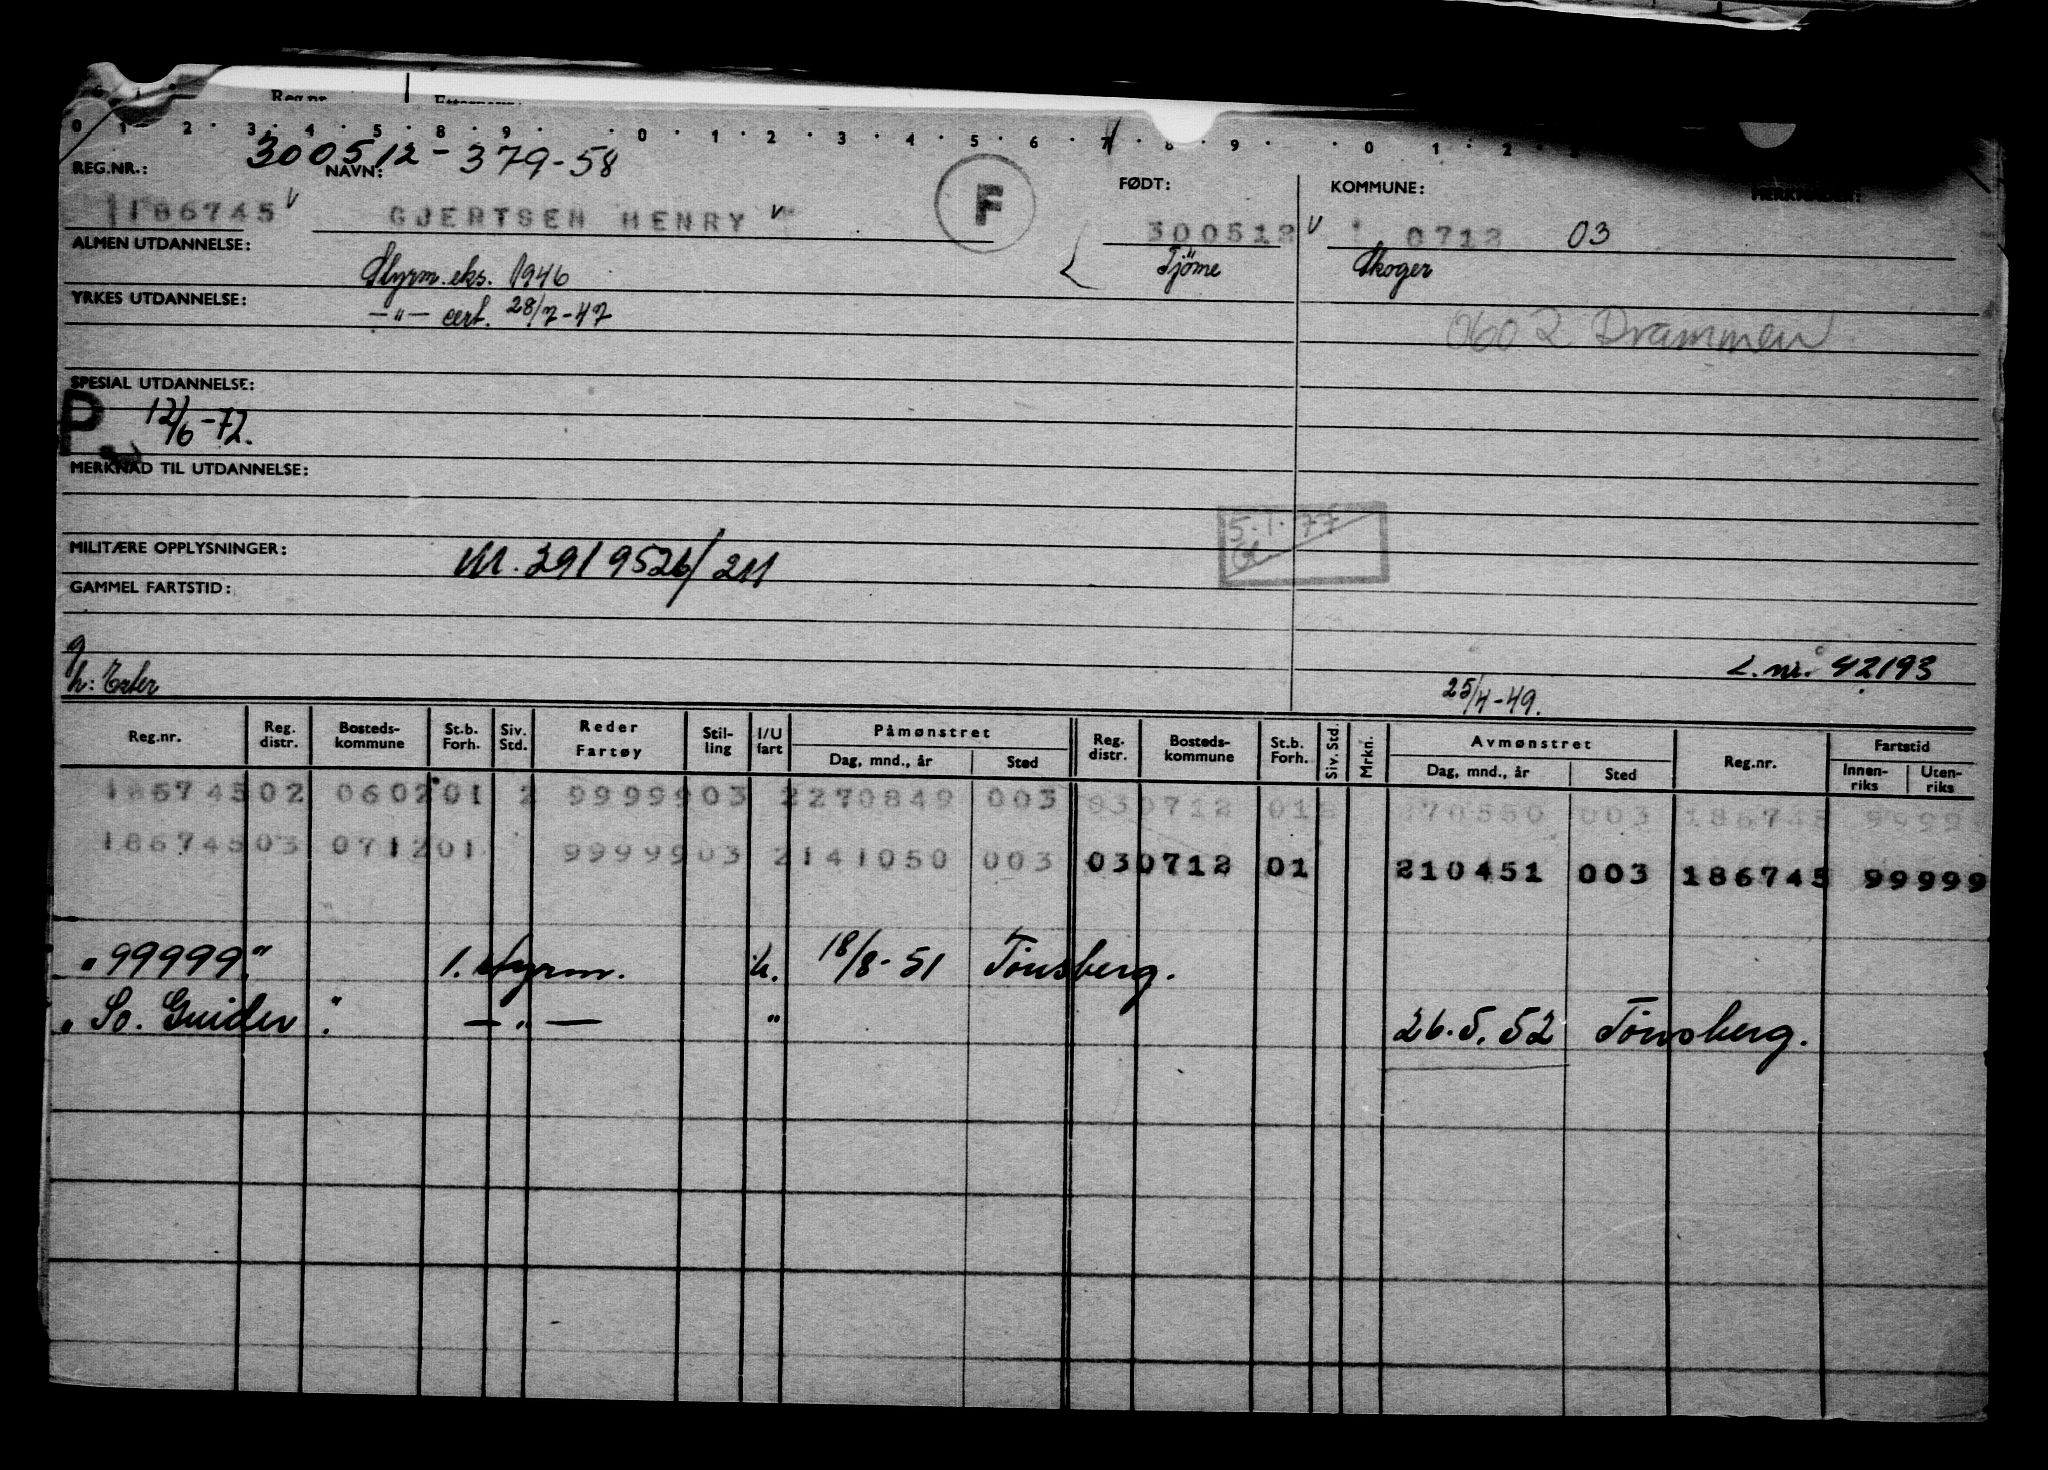 Reg.nr.
0 1 2 3 4 5 8 9 0 1 2 3 4 5 6 7 8 9 0 1 2
300512-379-58
REG.NR.: NAVN: FØDT: KOMMUNE:
186745 v GJERTSEN HENRY v F 300512 v 0712 03
ALMEN UTDANNELSE: Styrm. eks. 1946 Tjöme Skoger
YRKES UTDANNELSE: —"— cert. 28/7-47 0602 Drammen
SPESIAL UTDANNELSE:
P 12/6-72.
MERKNAD TIL UTDANNELSE:
5.1.77
MILITÆRE OPPLYSNINGER: M. 2919526/211
GAMMEL FARTSTID:
g
h: Exter 25/4-49. L.nr. 42193
Reg.nr. Reg. distr. Bosteds-kommune St.b. Forh. Siv. Std. Reder Fartøy Stil-ling I/U fart Påmønstret Dag, mnd., år Sted Reg. distr. Bosteds-kommune St.b. Forh. Siv. Std. Mrkn. Avmønstret Dag, mnd., år Sted Reg.nr. Fartstid Innen-riks Uten-riks
186745 02 0602 01 2 99999 03 2 270849 003 03 0712 01 270550 003 186745 9999
186745 03 0712 01 99999 03 2 141050 003 03 0712 01 210451 003 186745 99999
"99999" 1. styrm. u. 18/8-51 Tönsberg.
" So. Guider " —"— " 26.5.52 Tönsberg.